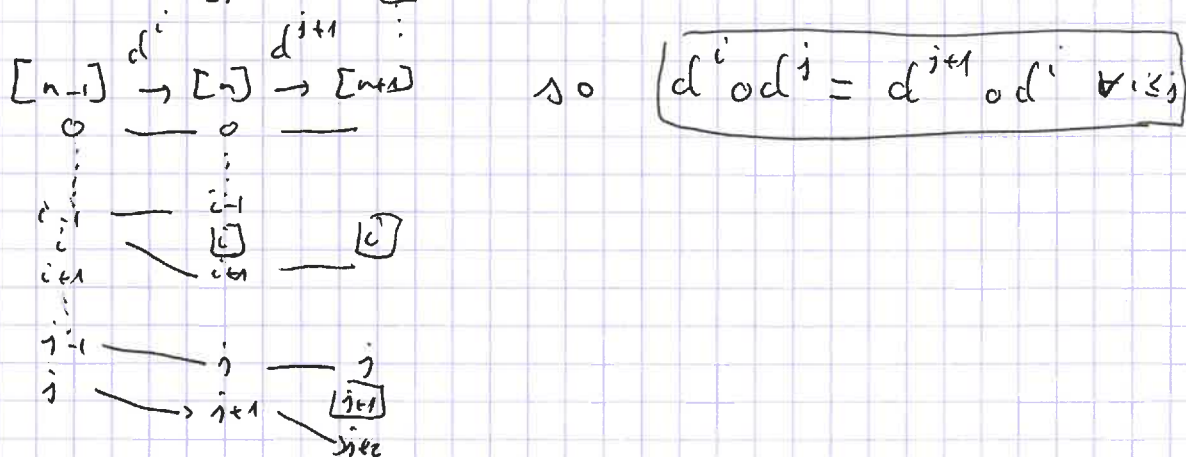 d^i d^{j+1}
[n-1] → [n] → [n+1] so d^i ∘ d^j = d^{j+1} ∘ d^i ∀ i ≤ j
0 — 0 —
i-1 — i-1
i i i
i+1 i+1 —
j-1 j — j
j → j+1 j+1
j+2